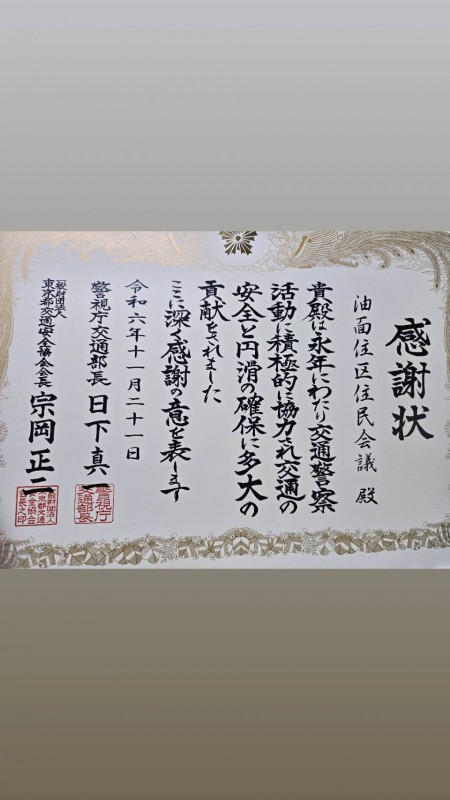 感謝状
油面住区住民会議 殿
貴殿は永年にわたり交通警察
活動に積極的に協力され交通の
安全と円滑の確保に多大の
貢献をされました
ここに深く感謝の意を表します
令和六年十一月二十一日
警視庁交通部長 日下真一
一般財団法人
東京都交通安全協会会長 宗岡正二
警視庁
交通部長